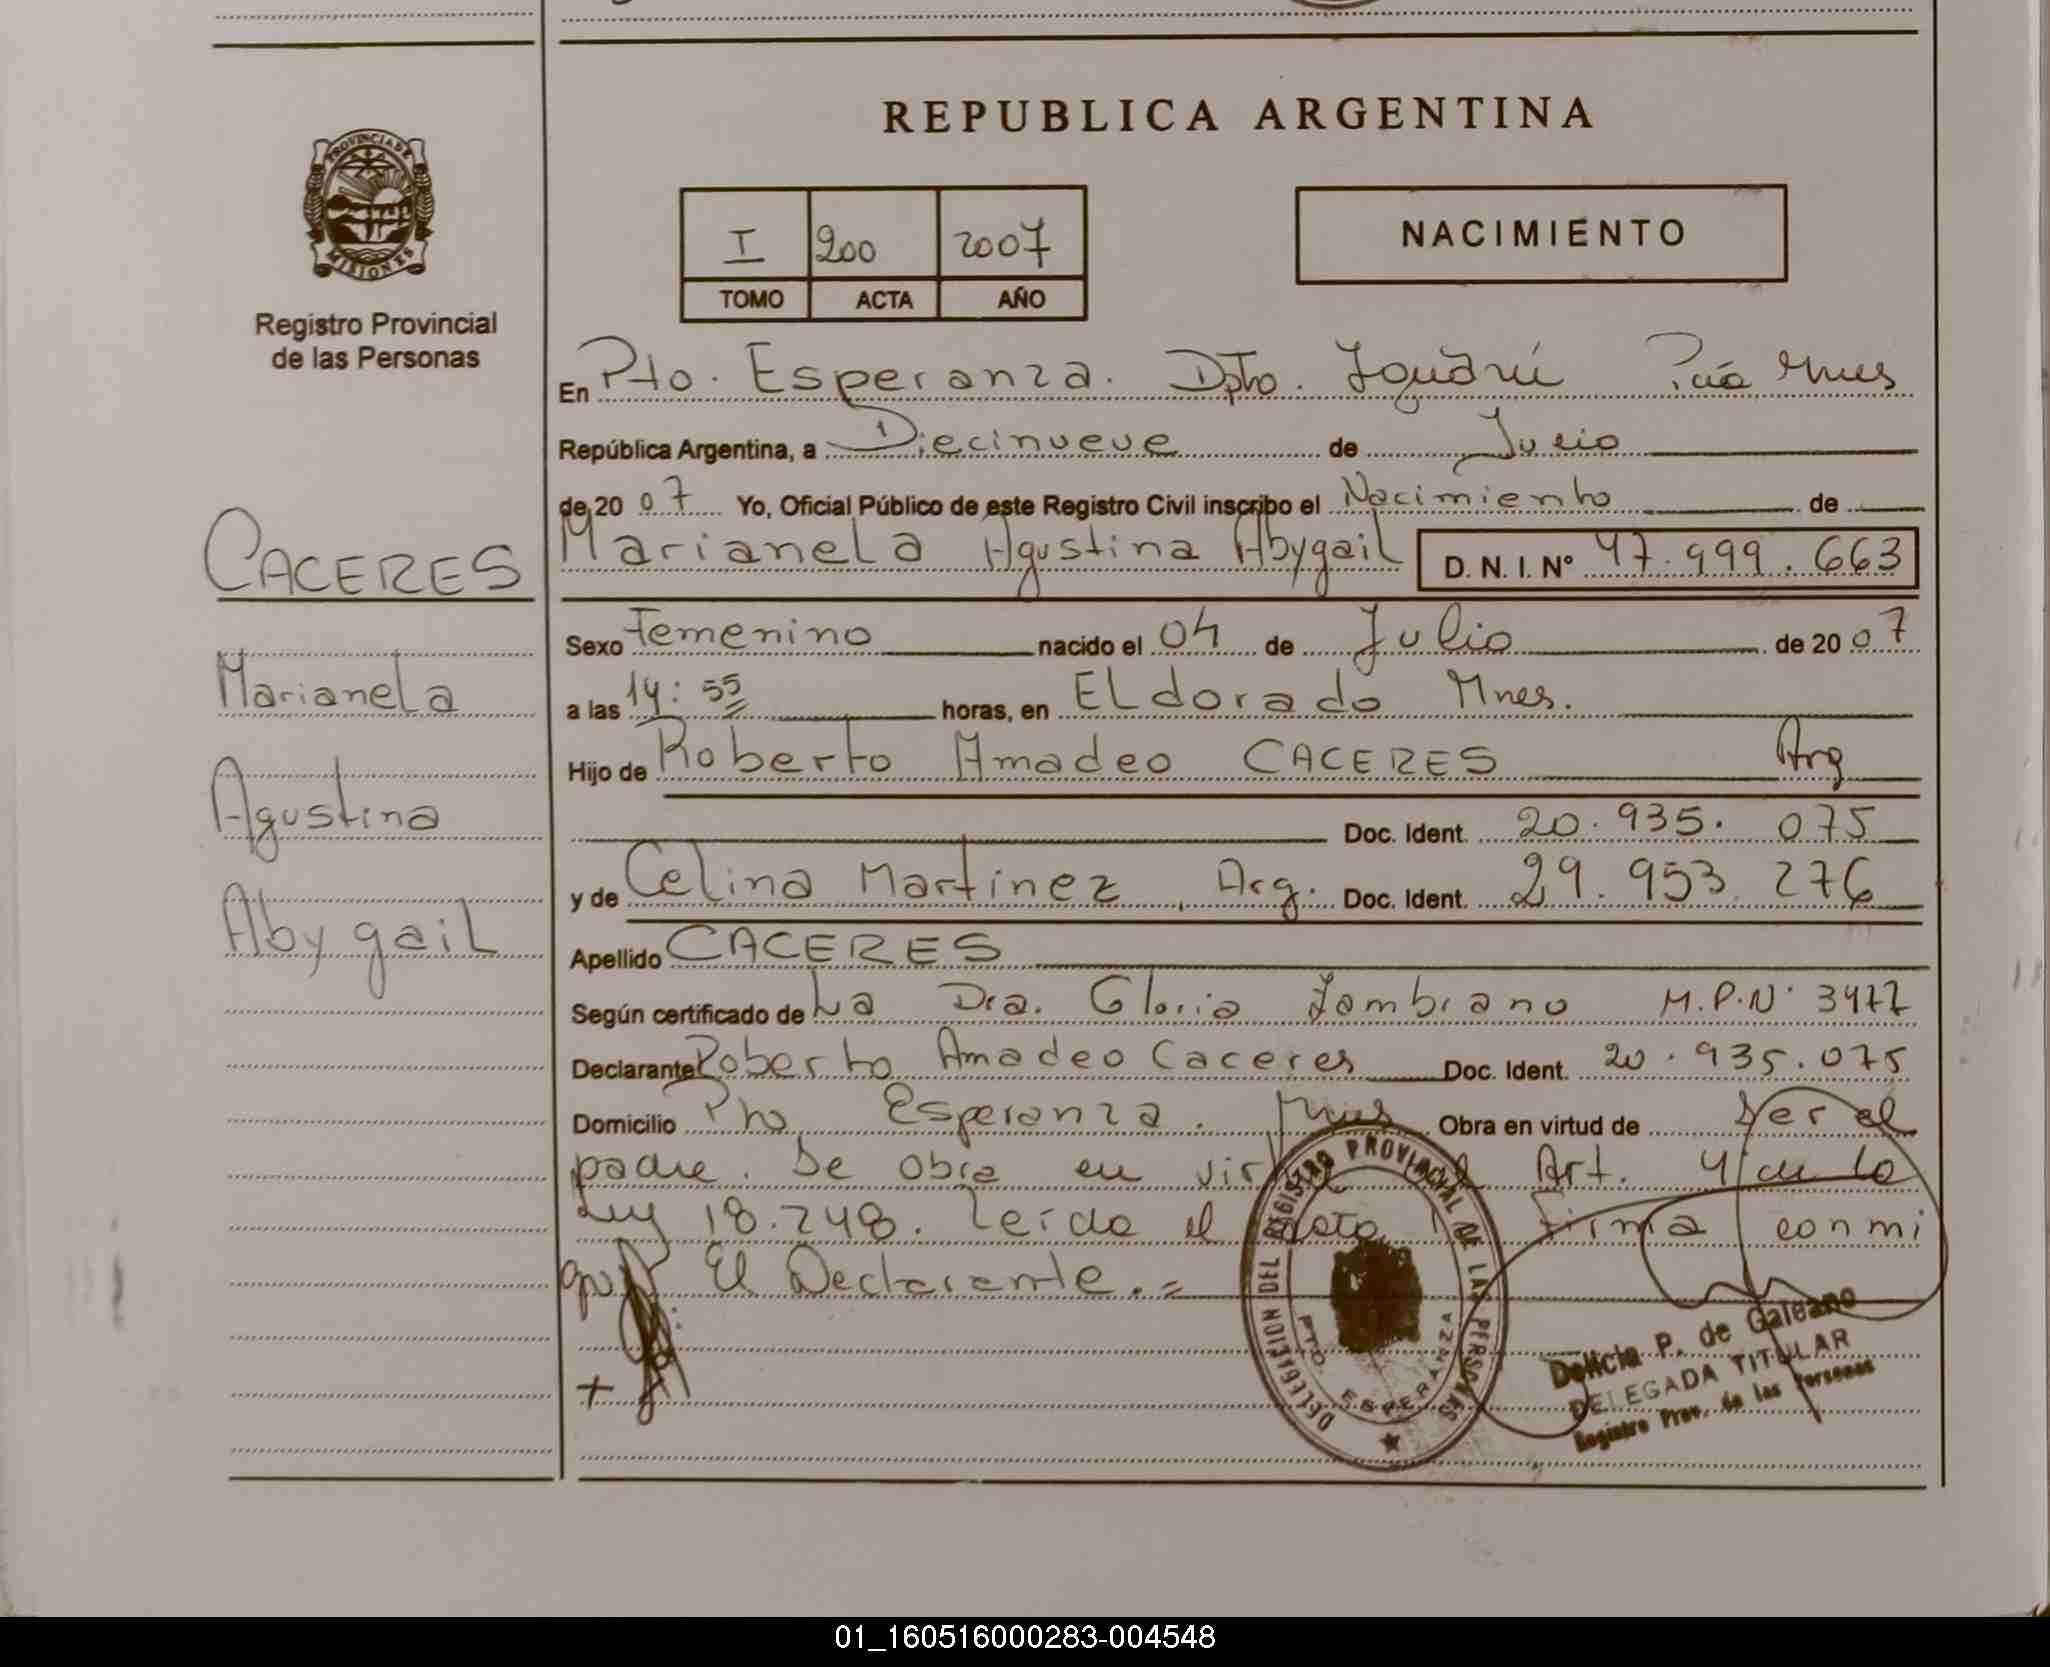 REPUBLICA ARGENTINA
PROVINCIA DE
MISIONES
Registro Provincial
de las Personas
I 200 2007
TOMO ACTA AÑO
NACIMIENTO
En Pto. Esperanza. Dpto. Iguazú Pcia Mnes
República Argentina, a Diecinueve de Julio
de 20 07 Yo, Oficial Público de este Registro Civil inscribo el Nacimiento de
CACERES
Marianela Agustina Abygail D. N. I. N° 47.999.663
Sexo Femenino nacido el 04 de Julio de 20 07
Marianela
a las 14:55 horas, en Eldorado Mnes.
Hijo de Roberto Amadeo CACERES Arg
Agustina
Doc. Ident. 20.935.075
y de Celina Martinez, Arg. Doc. Ident. 29.953.276
Abygail
Apellido CACERES
Según certificado de La Dra. Gloria Zambrano M.P.N° 3477
Declarante Roberto Amadeo Caceres Doc. Ident. 20.935.075
Domicilio Pto Esperanza. Mnes Obra en virtud de Ser el
padre. Se obra en Art. 4 de la
Ley 18.248. Leída el Acta Firma conmi
go El Declarante.=
DELEGACION DEL REGISTRO PROVINCIAL DE LAS PERSONAS
PTO. ESPERANZA
Delicia P. de Galeano
DELEGADA TITULAR
Registro Prov. de las Personas
01_160516000283-004548